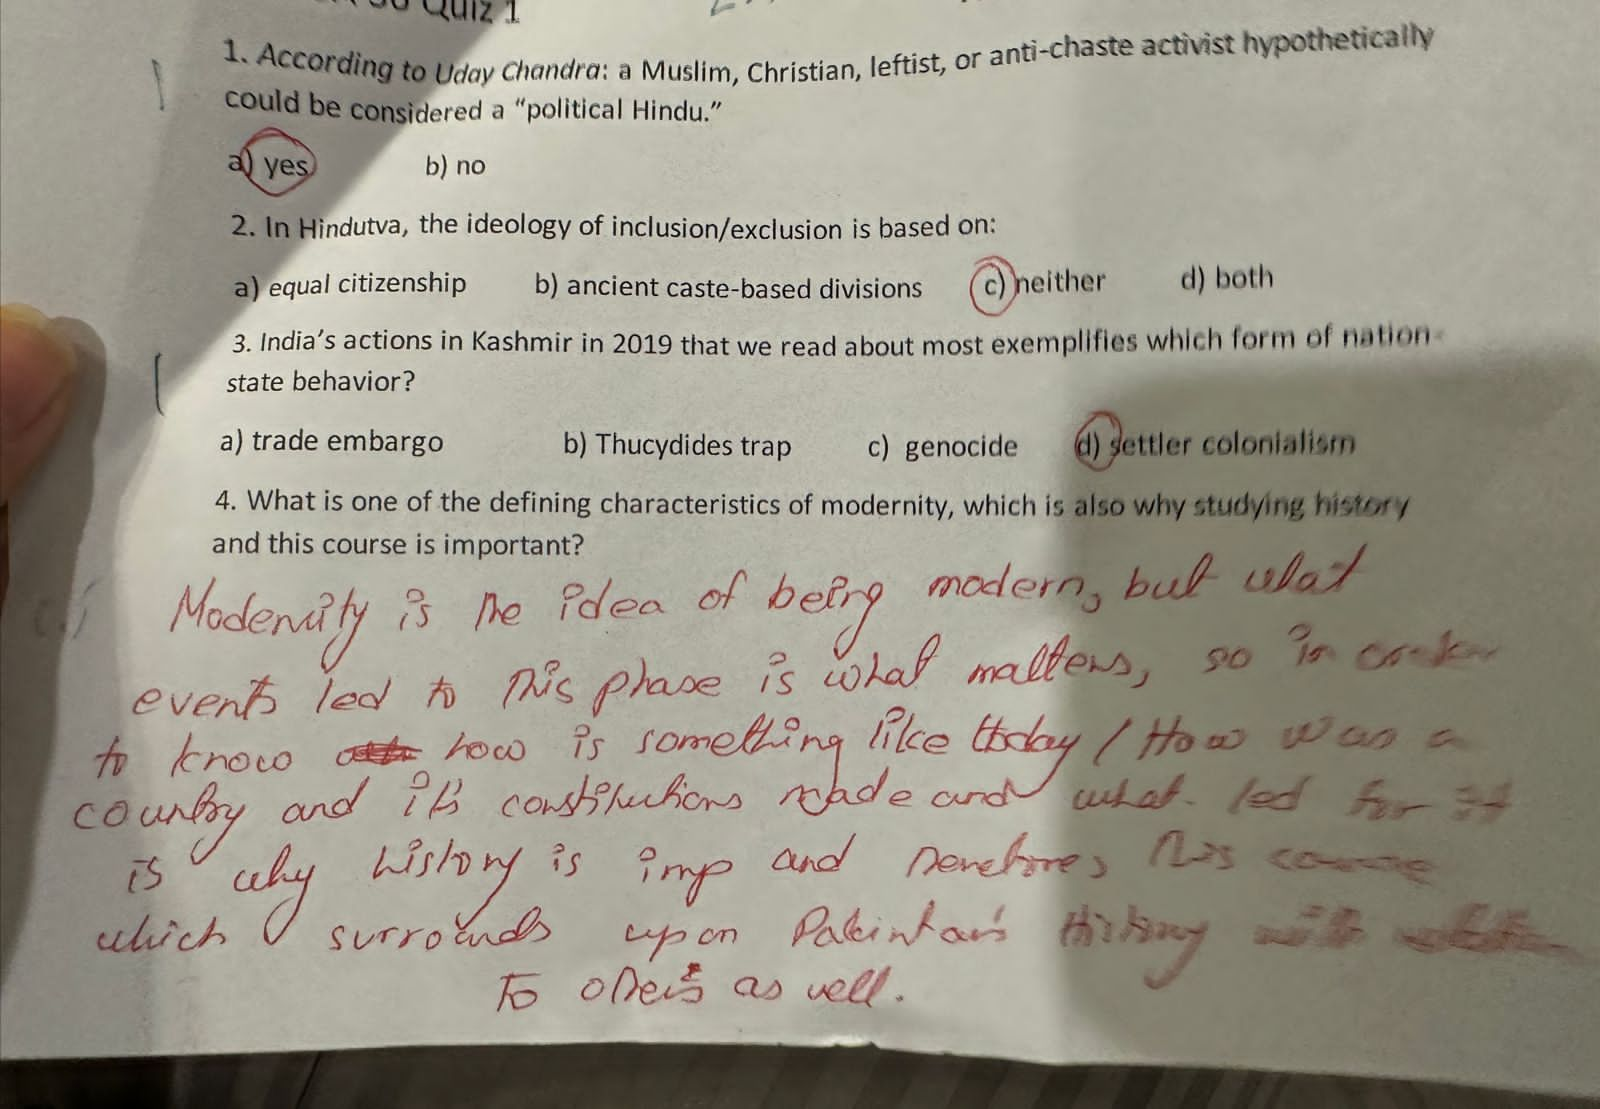 Quiz 1
1. According to Uday Chandra: a Muslim, Christian, leftist, or anti-chaste activist hypothetically
could be considered a "political Hindu."
a) yes b) no
2. In Hindutva, the ideology of inclusion/exclusion is based on:
a) equal citizenship b) ancient caste-based divisions c) neither d) both
3. India's actions in Kashmir in 2019 that we read about most exemplifies which form of nation-
state behavior?
a) trade embargo b) Thucydides trap c) genocide d) settler colonialism
4. What is one of the defining characteristics of modernity, which is also why studying history
and this course is important?
Modernity is the idea of being modern, but what
events led to this phase is what matters, so in order
to know how is something like today / How was a
country and it's constitutions made and what led for
is why history is imp and therefore, this course
which surrounds upon Pakistan's History
to others as well.